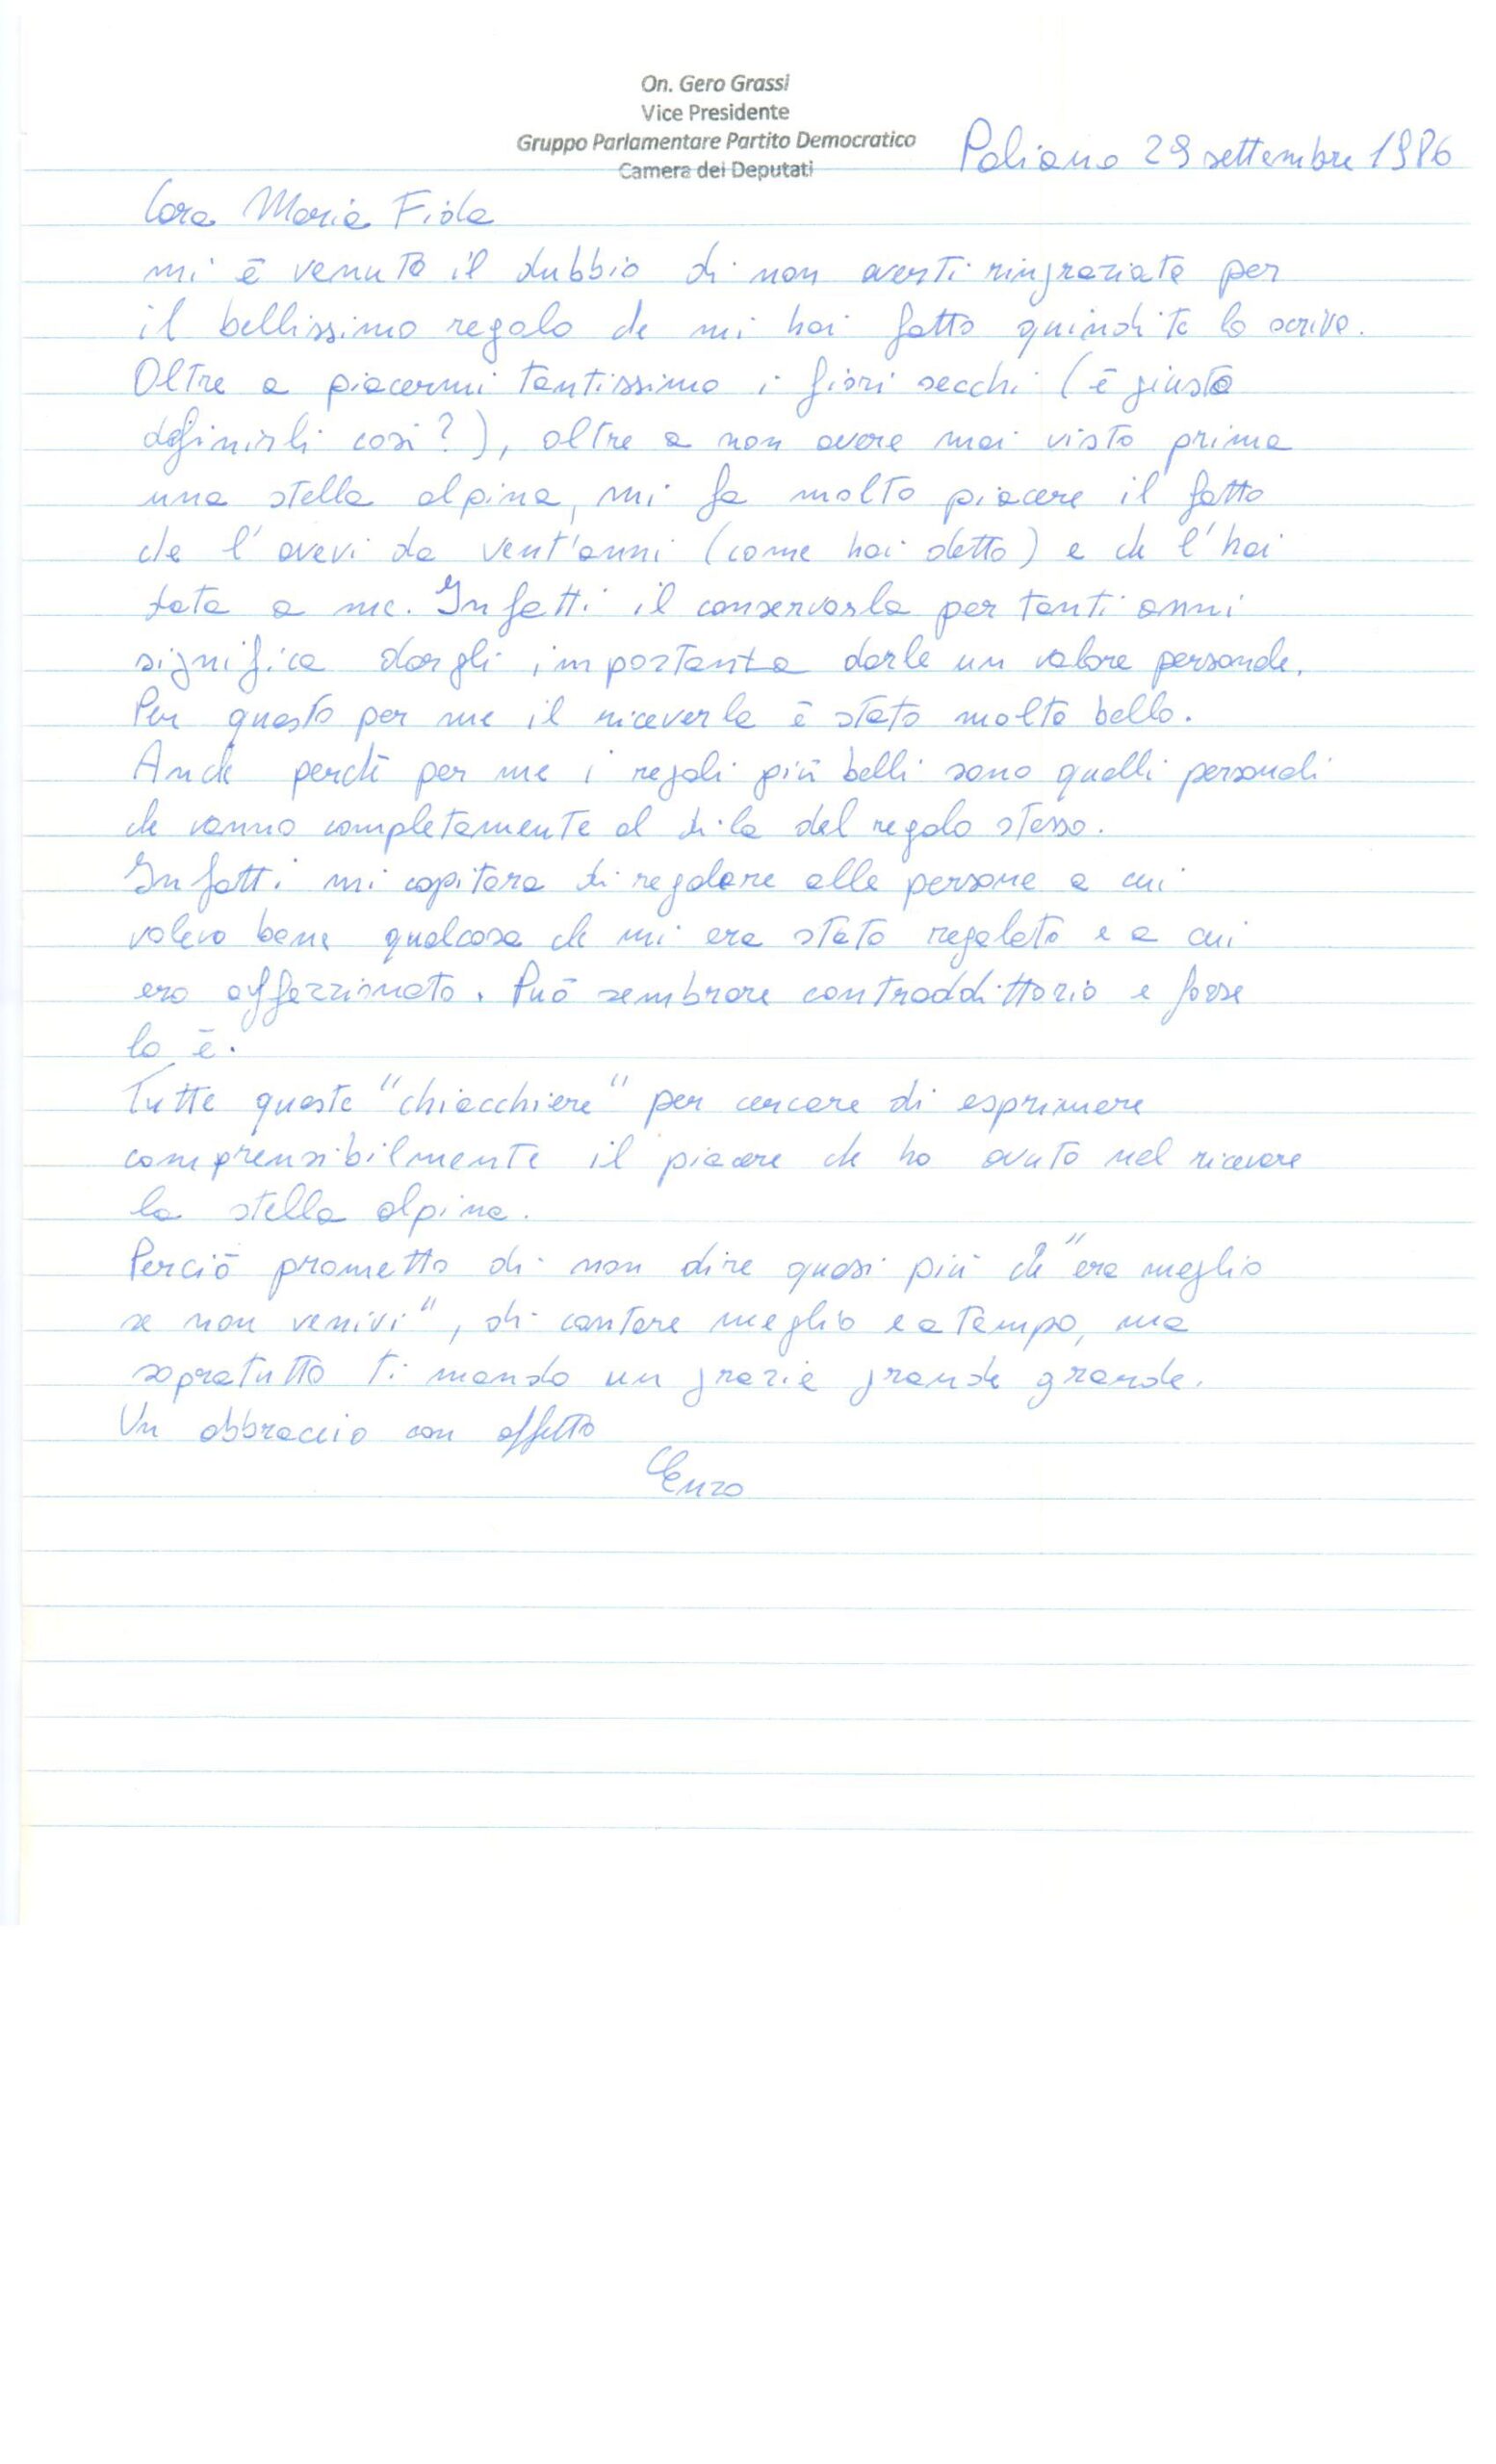 On. Gero Grassi
Vice Presidente
Gruppo Parlamentare Partito Democratico
Camera dei Deputati
Paliano 29 settembre 1986
Cara Maria Fida
mi è venuto il dubbio di non averti ringraziata per
il bellissimo regalo che mi hai fatto quindi te lo scrivo.
Oltre a piacermi tantissimo i fiori secchi (è giusto
definirli così?), oltre a non avere mai visto prima
una stella alpina, mi fa molto piacere il fatto
che l'avevi da vent'anni (come hai detto) e che l'hai
data a me. Infatti il conservarla per tanti anni
significa dargli importanza darle un valore personale.
Per questo per me il riceverla è stato molto bello.
Anche perché per me i regali più belli sono quelli personali
che vanno completamente al di la del regalo stesso.
Infatti mi capitava di regalare alle persone a cui
volevo bene qualcosa che mi era stato regalato e a cui
ero affezzionato. Può sembrare contraddittorio e forse
lo è.
Tutte queste "chiacchiere" per cercare di esprimere
comprensibilmente il piacere che ho avuto nel ricevere
la stella alpina.
Perciò prometto di non dire quasi più che "era meglio
se non venivi", di cantare meglio e a tempo, ma
sopratutto ti mando un grazie grande grande.
Un abbraccio con affetto
Enzo